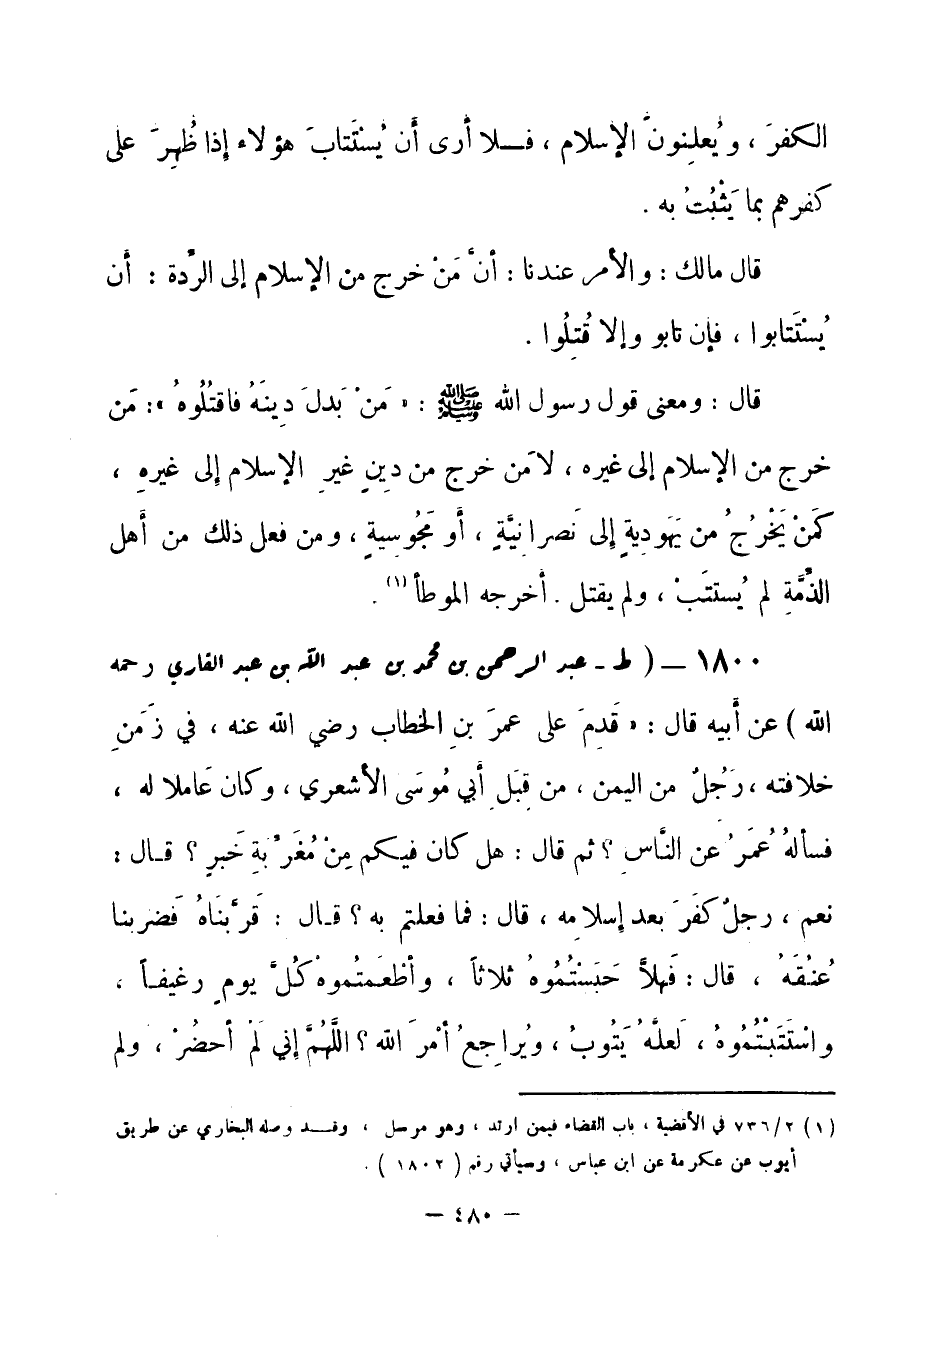 الكفرَ ، ويُعلِنونَ الإسلام ، فـلا أرى أَن يُسْتَتابَ هؤلاء إذا ظُهِرَ على
كفرهم بما يَثْبُتُ به .
قال مالك : والأمر عندنا : أنَّ مَنْ خرج من الإسلام إلى الرِّدة : أَن
يُسْتَتابوا ، فإن تابو وإلا قُتِلُوا .
قال : ومعنى قول رسول الله ﷺ : « مَنْ بَدلَ دِينَهُ فاقتُلُوهُ »: مَن
خرج من الإسلام إلى غيره ، لا مَن خرج من دِينٍ غيرِ الإسلام إلى غيرهِ ،
كَمَنْ يَخْرُجُ من يَهَوديةٍ إلى نَصرانيَّةٍ ، أَو مَجُوسيةٍ ، ومن فعل ذلك من أَهل
الذِّمَّةِ لم يُستتَبْ ، ولم يقتل . أخرجه الموطأ (١) .
١٨٠٠ – ( ط - عبد الرحمن بن محمد بن عبد الله بن عبد القاري رحمه
الله ) عن أَبيه قال : « قَدِمَ على عمرَ بنِ الخطاب رضي الله عنه ، في زَمَنِ
خلافته ، رَجُلٌ من اليمن ، من قِبَلِ أَبي مُوسَى الأشعري ، وكان عَاملا له ،
فسألهُ عُمَرُ عن النَّاسِ ؟ ثم قال : هل كان فيكم مِنْ مُغَرِّبةِ خَبرٍ ؟ قـال :
نعم ، رجلٌ كفَرَ بعد إسلامِه ، قال : فما فعلتم به ؟ قـال : قَرَّبنَاهُ فَضربنا
عُنُقَهُ ، قال : فَهلاَّ حَبَسْتُمُوهُ ثلاثاً ، وأطعَمتُموهْ كُلَّ يومٍ رغيفـاً ،
واسْتَتَبْتُمُوهُ ، لَعلَّهُ يَتُوبُ ، ويُراجِعُ أَمْرَ الله ؟ اللَّهُمَّ إني لَمْ أَحضُرْ ، ولم
(١) ٧٣٦/٢ في الأقضية ، باب القضاء فيمن ارتد ، وهو مرسل ، وقـد وصله البخاري عن طريق
أيوب عن عكرمة عن ابن عباس ، وسيأتي رقم ( ١٨٠٢ ) .
– ٤٨٠ –